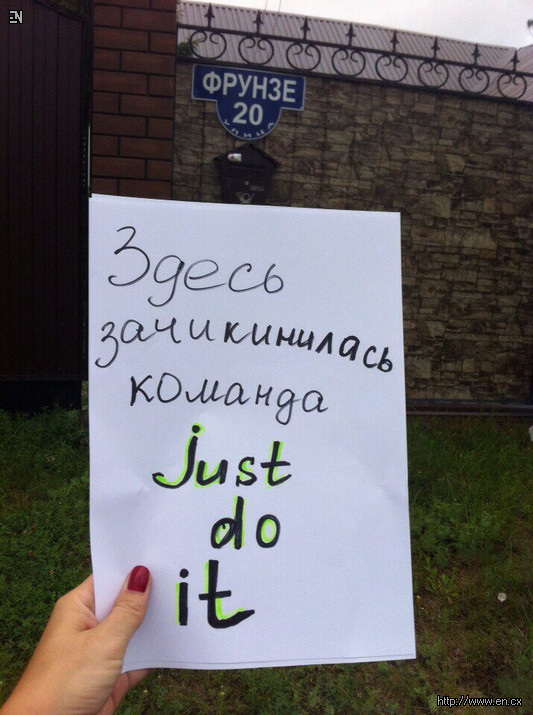 EN
ФРУНЗЕ
20
УЛИЦА
Здесь
зачикинилась
команда
just
do
it
http://www.en.cx